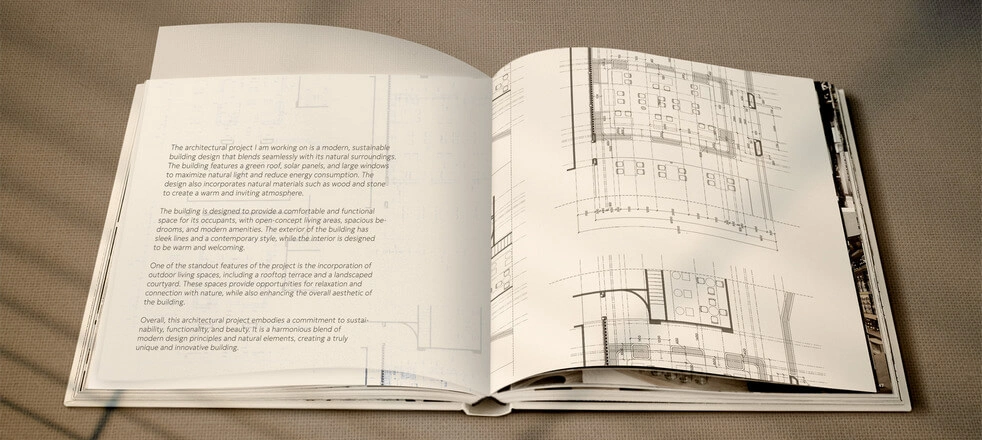 The architectural project I am working on is a modern, sustainable
building design that blends seamlessly with its natural surroundings.
The building features a green roof, solar panels, and large windows
to maximize natural light and reduce energy consumption. The
design also incorporates natural materials such as wood and stone
to create a warm and inviting atmosphere.
The building is designed to provide a comfortable and functional
space for its occupants, with open-concept living areas, spacious be-
drooms, and modern amenities. The exterior of the building has
sleek lines and a contemporary style, while the interior is designed
to be warm and welcoming.
One of the standout features of the project is the incorporation of
outdoor living spaces, including a rooftop terrace and a landscaped
courtyard. These spaces provide opportunities for relaxation and
connection with nature, while also enhancing the overall aesthetic of
the building.
Overall, this architectural project embodies a commitment to sustai-
nability, functionality, and beauty. It is a harmonious blend of
modern design principles and natural elements, creating a truly
unique and innovative building.